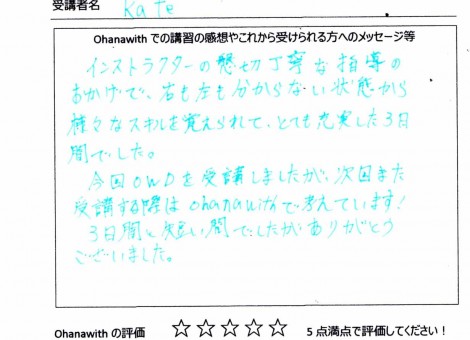 受講者名 Kate
Ohanawith での講習の感想やこれから受けられる方へのメッセージ等
インストラクターの懇切丁寧な指導の
おかげで、右も左も分からない状態から
様々なスキルを覚えられて、とても充実した3日
間でした。
今回OWDを受講しましたが、次回また
受講する際はohanawithで考えています!
3日間と短い間でしたがありがとう
ございました。
Ohanawith の評価 ☆☆☆☆☆ 5点満点で評価してください!